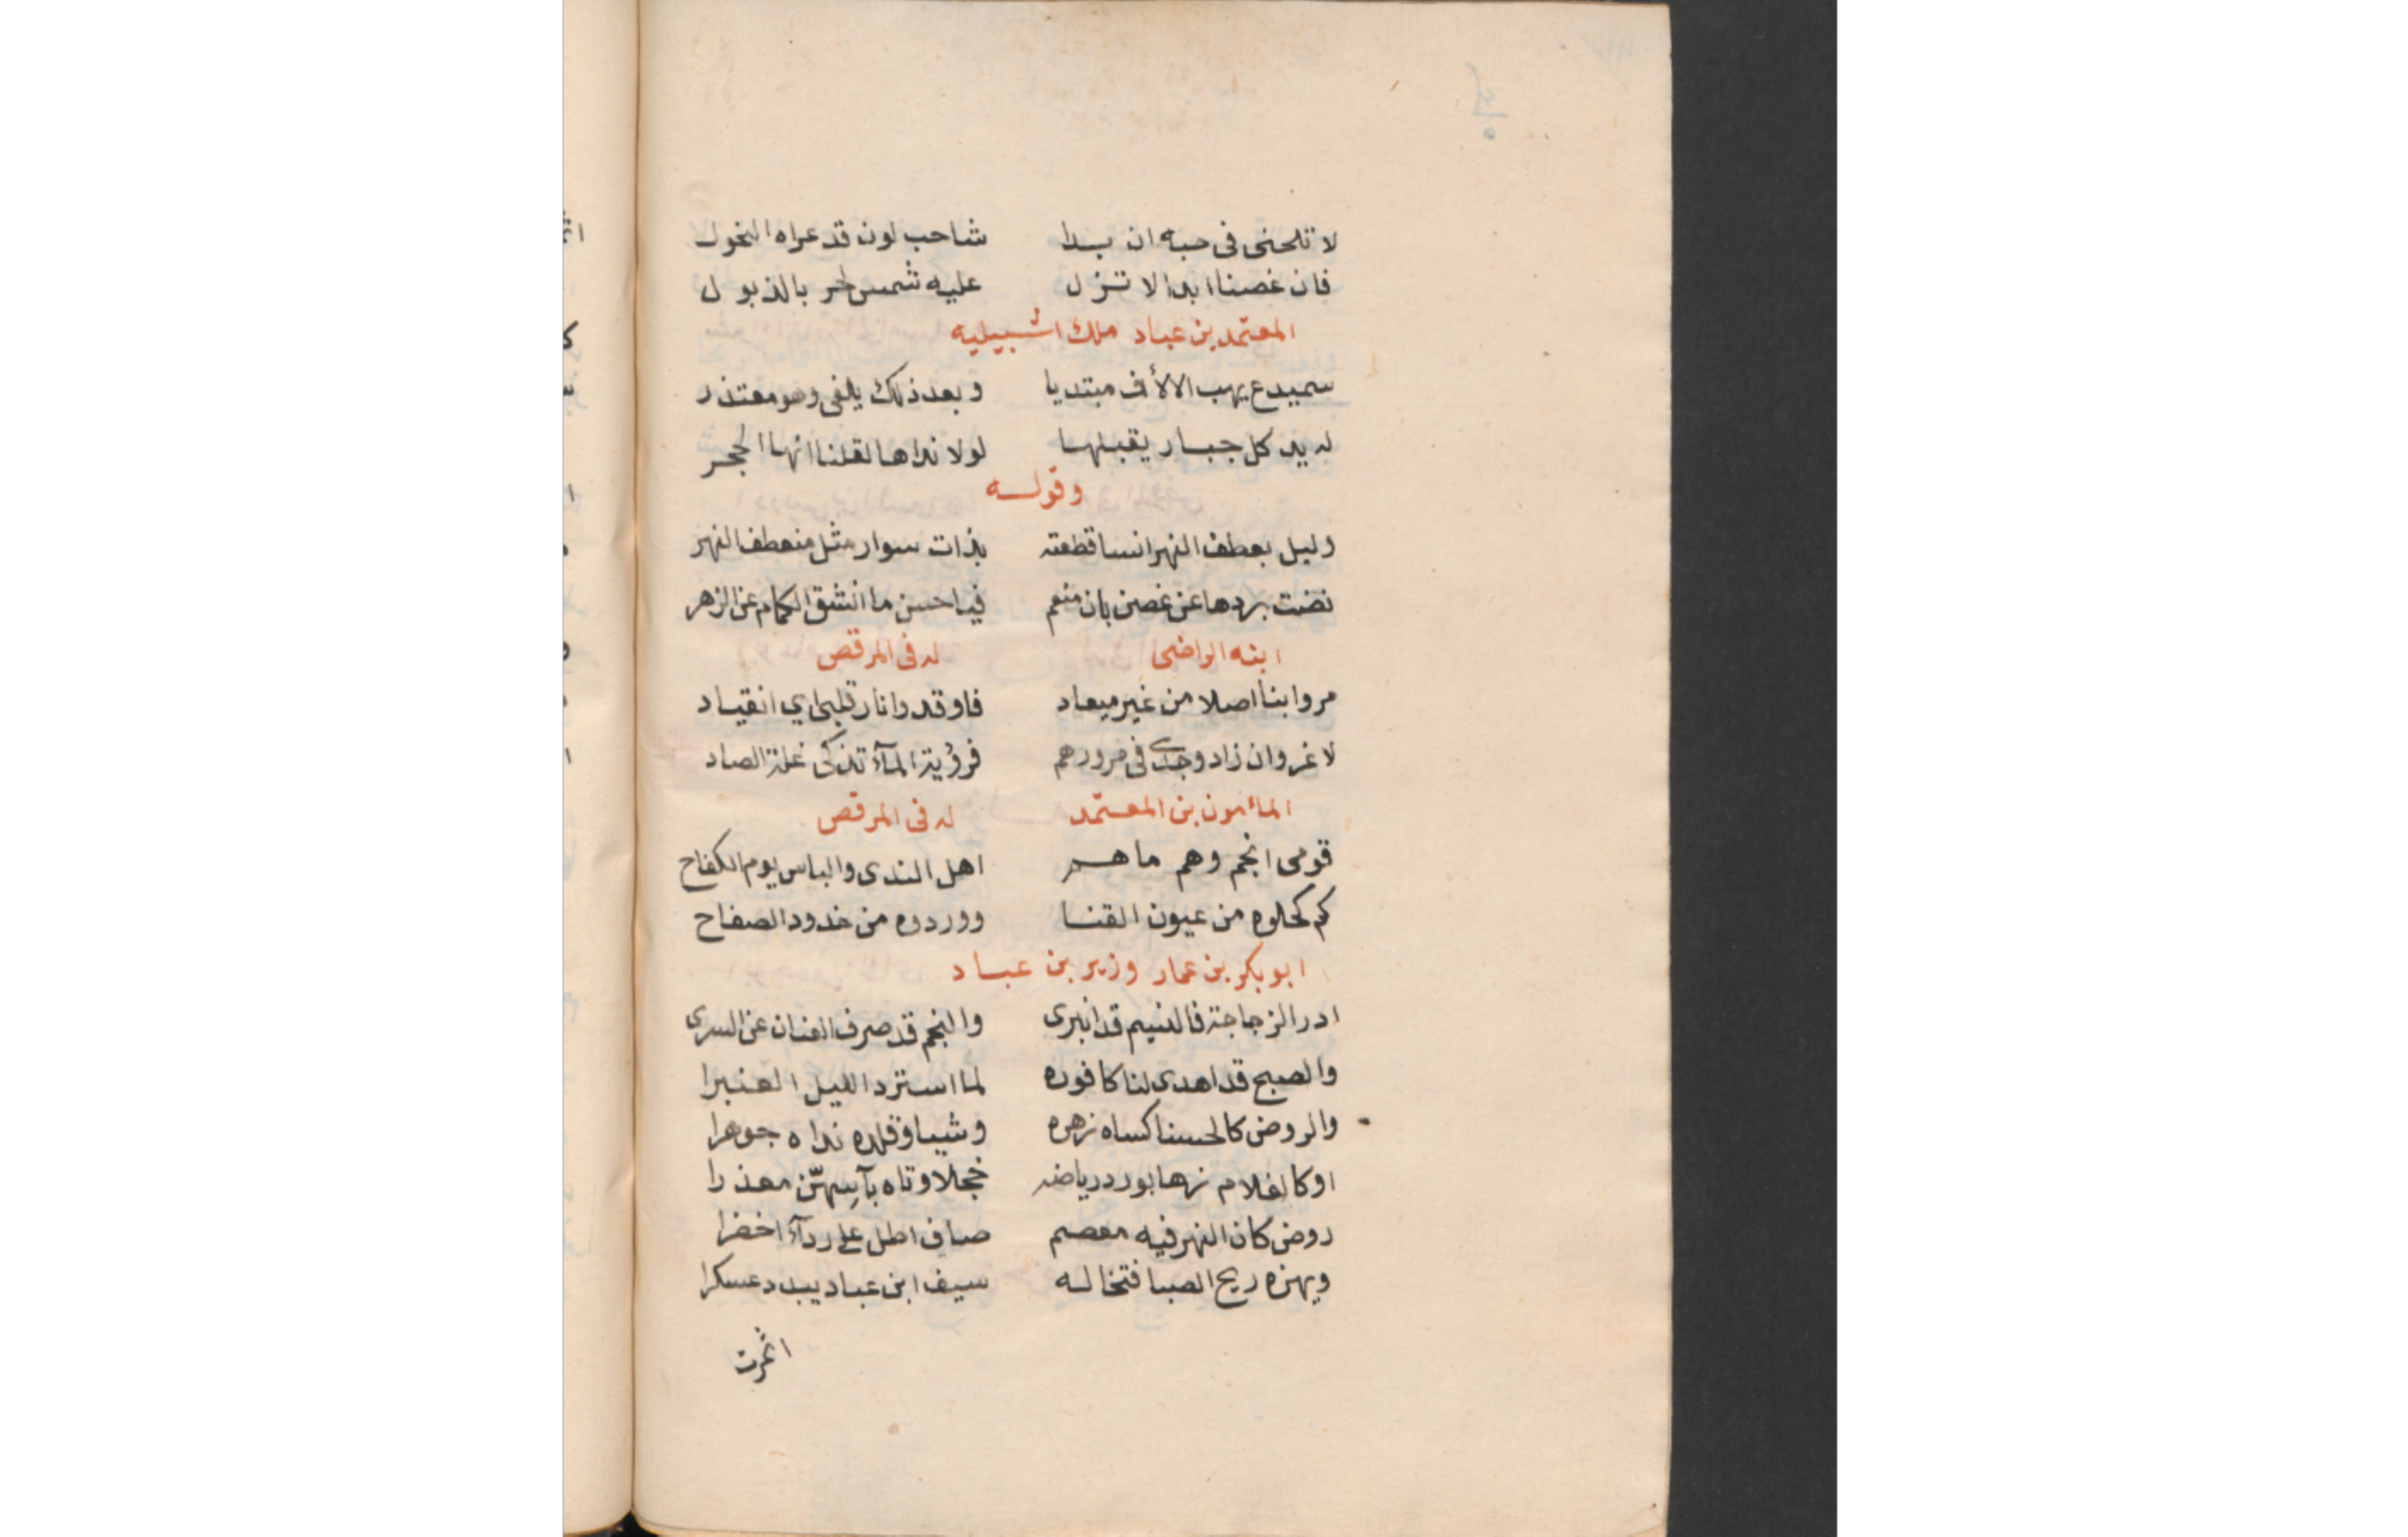 لا تلحنى فى حبه ان بدا شاحب لون قد عراه النحول
فان غصنا ابدا لا تزل عليه شمس الحر بالذبول
المعتمد بن عباد ملك اشبيليه
سميدع يهب الالأف مبتديا وبعد ذلك يلفى وهو معتذر
له يد كل جبار يقبلها لولا نداها لقلنا انها الحجر
وقوله
وليل بعطف النهر انسا قطعته بذات سوار مثل منعطف النهر
نضت بردها عن غصن بان منعم فيا حسن ما انشق الكمام عن الزهر
ابنه الراضى له فى المرقص
مروا بنا اصلا من غير ميعاد فاوقدوا نار قلبى اي انقياد
لا غروان زاد وجدى فى مرورهم فرؤية المآء تذكى غلة الصاد
المأمون بن المعتمد له فى المرقص
قومى انجم وهم ما هم اهل الندى والباس يوم الكفاح
كم كحلوه من عيون القنا ووردوه من خدود الصفاح
ابو بكر بن عمار وزير بن عباد
ادر الزجاجة فالنسيم قد انبرى والنجم قد صرف العنان عن السرى
والصبح قد اهدى لنا كافوره لما استرد الليل العنبرا
والروض كالحسنا كساه زهره وشيا وقلده نداه جوهرا
او كالغلام زها بورد رياضه خجلا وتاه بآسهنّ معذرا
روض كان النهر فيه معصم صاف اطل على ردآء اخضرا
ويهزه ريح الصبا فتخاله سيف ابن عباد يبدد عسكرا
اثمرت